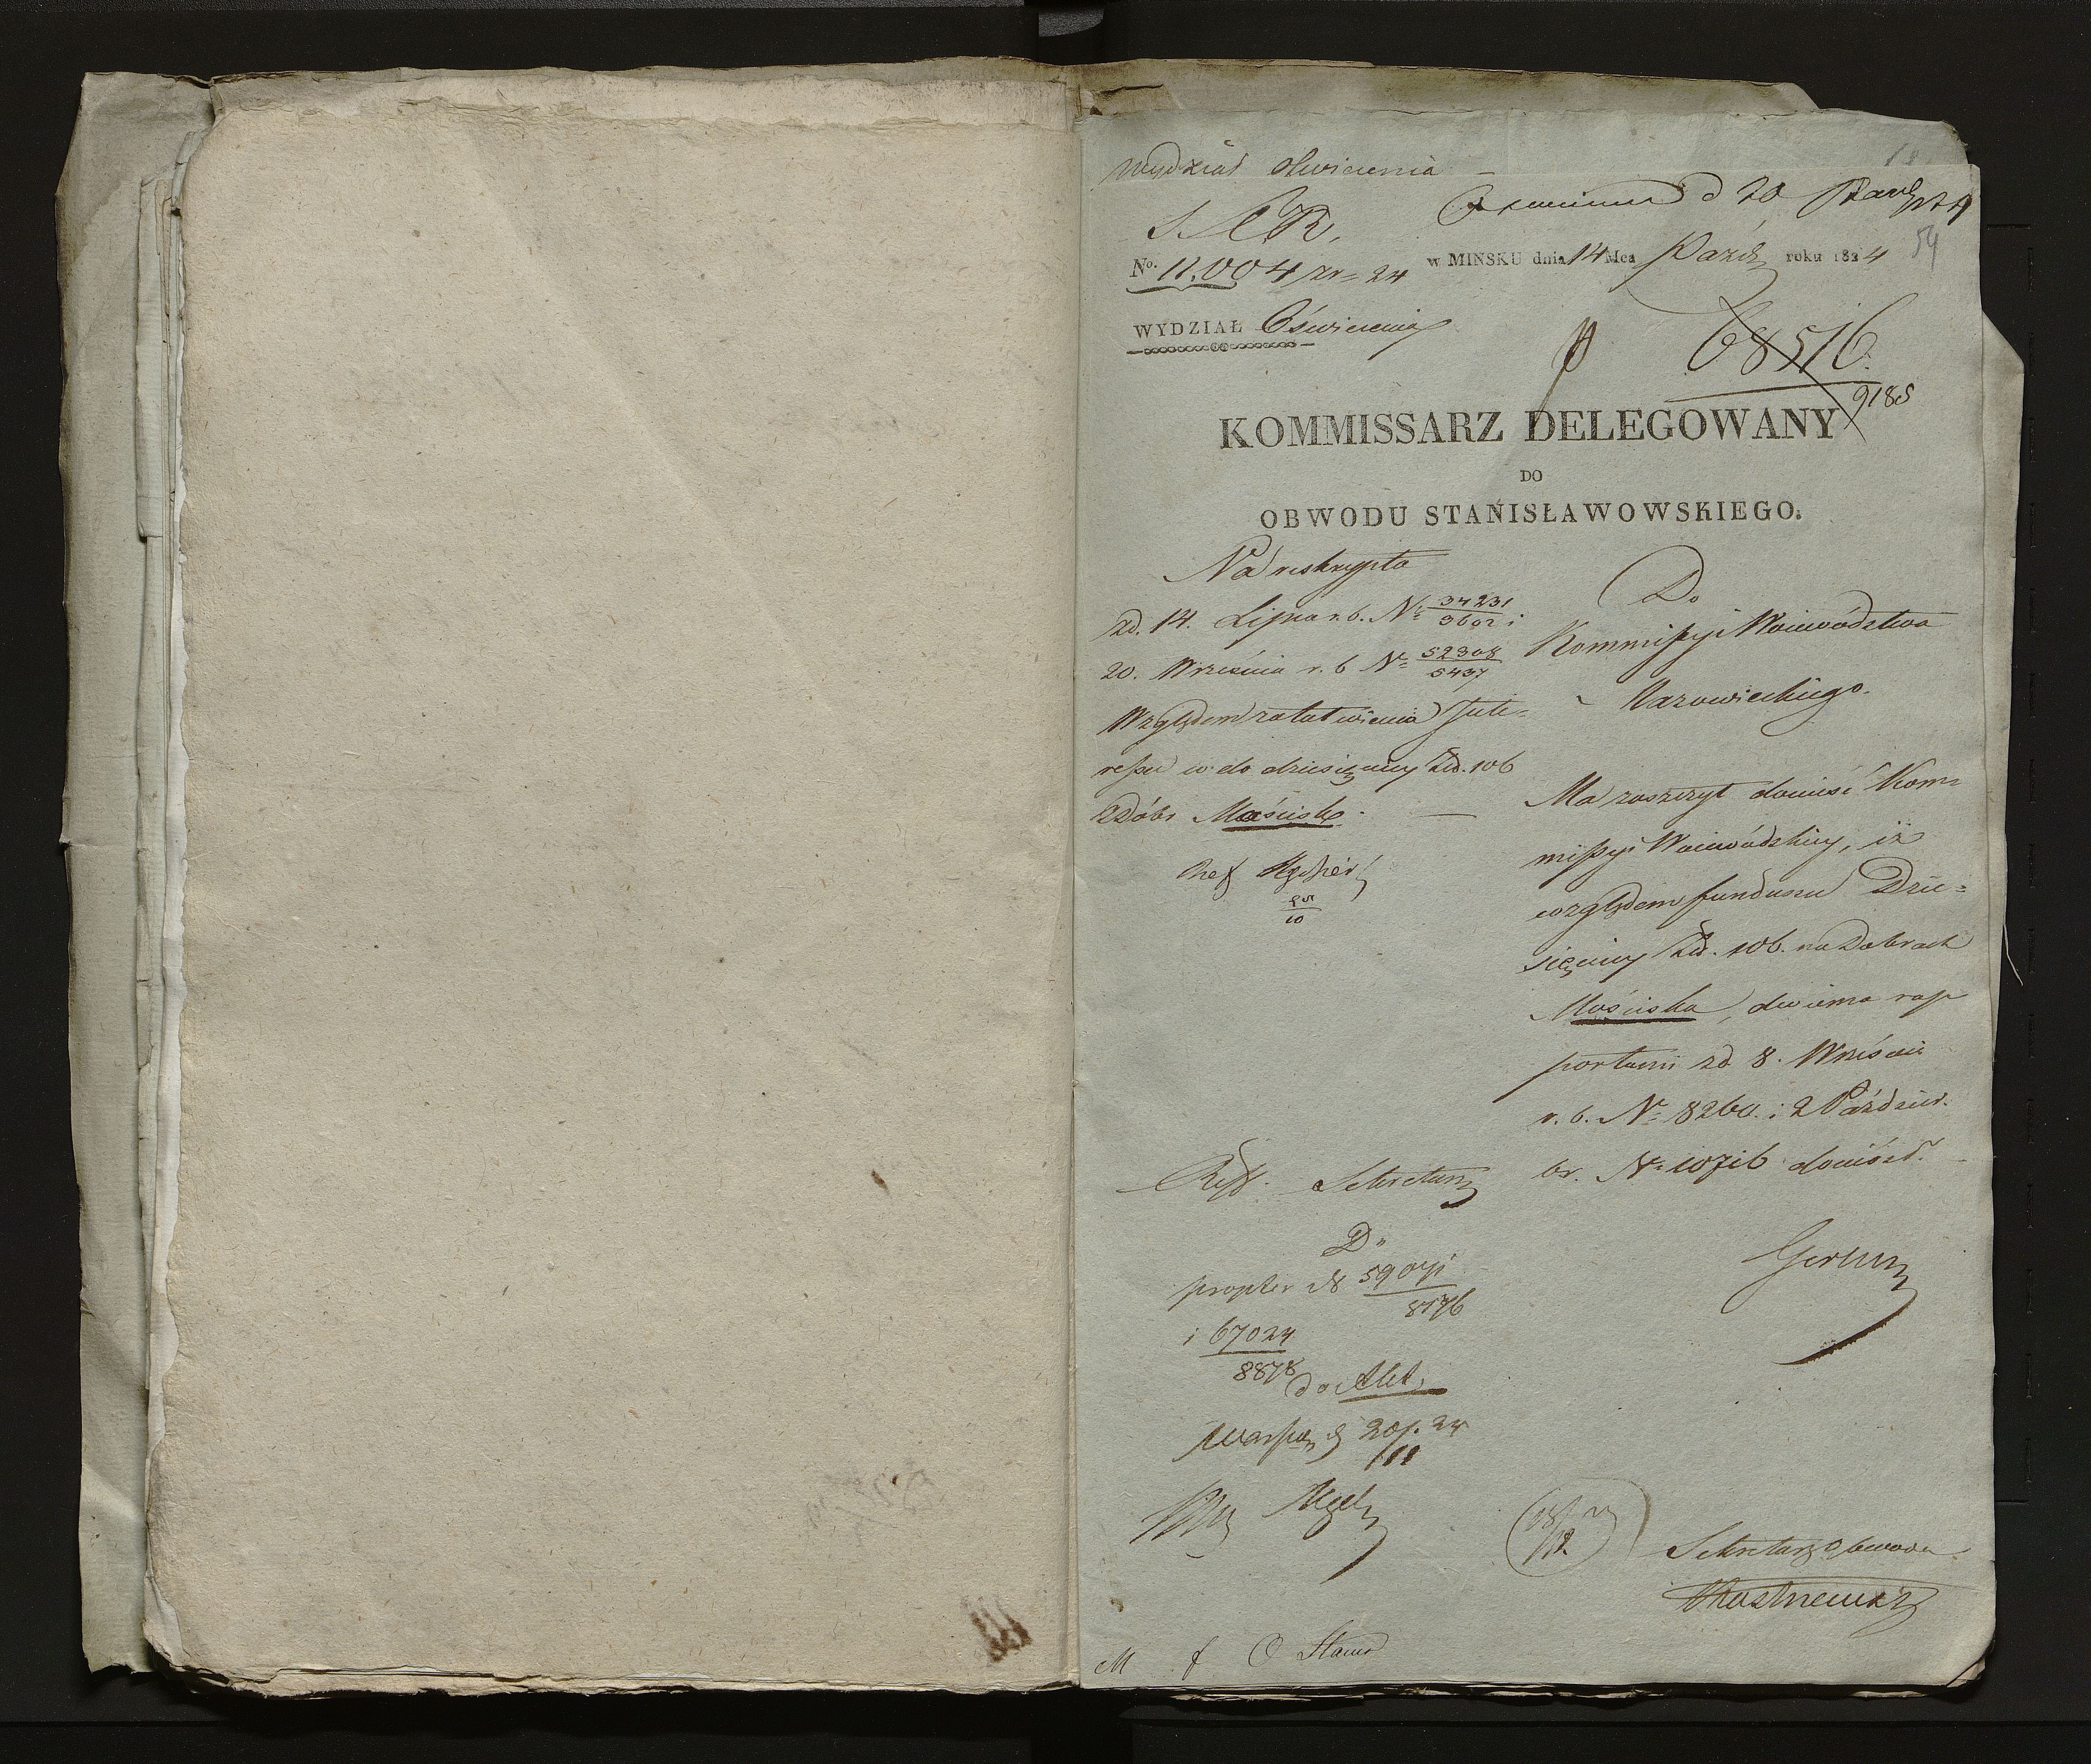 Wydział Oświecenia
d 20
54
No. 11,004 /zr = 24
w MINSKU dnia 14 Mca Paźdz roku 1824
WYDZIAŁ Oświecenia
68516.
9185
KOMMISSARZ DELEGOWANY
DO
OBWODU STANISŁAWOWSKIEGO.
Na reskrypta
zd. 14. Lipca r. b. No 34231/3602 i
20. Września r. b No 52308/5437
Względem załatwienia Inte=
ressu co do dziesięciny Złł. 106
z Dóbr Mościsk.
Do
Kommissyi Woiewództwa
Mazowieckiego.
Ma zaszczyt donieść Kom=
missyi Woiewódzkiey, iż
względem funduszu Dzie=
sięciny Złł. 106. na Dobrach
Mościska, dwiema rap
portami zd 8. Wrześnie
r. b. No 8260. i 2 Paździer.
br. No 10716 doniósł.
Reff. Sekretarz
D"
propter N 59071/8176
i 67024/8878
do Akt.
20/11 24
Sekretarz Obwodu
M f O Stanis